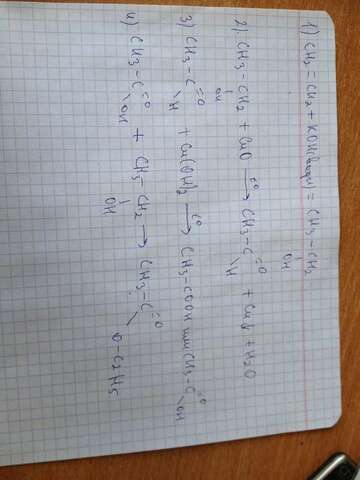 1) CH2 = CH2 + KOH(водн) = CH3 - CH2
OH
2) CH3 - CH2 + CuO t° → CH3 - C =O H + Cu↓ + H2O
OH
3) CH3 - C =O H + Cu(OH)2 t° → CH3 - COOH или CH3 - C =O OH
4) CH3 - C =O OH + CH3 - CH2 → CH3 - C =O O - C2H5
OH